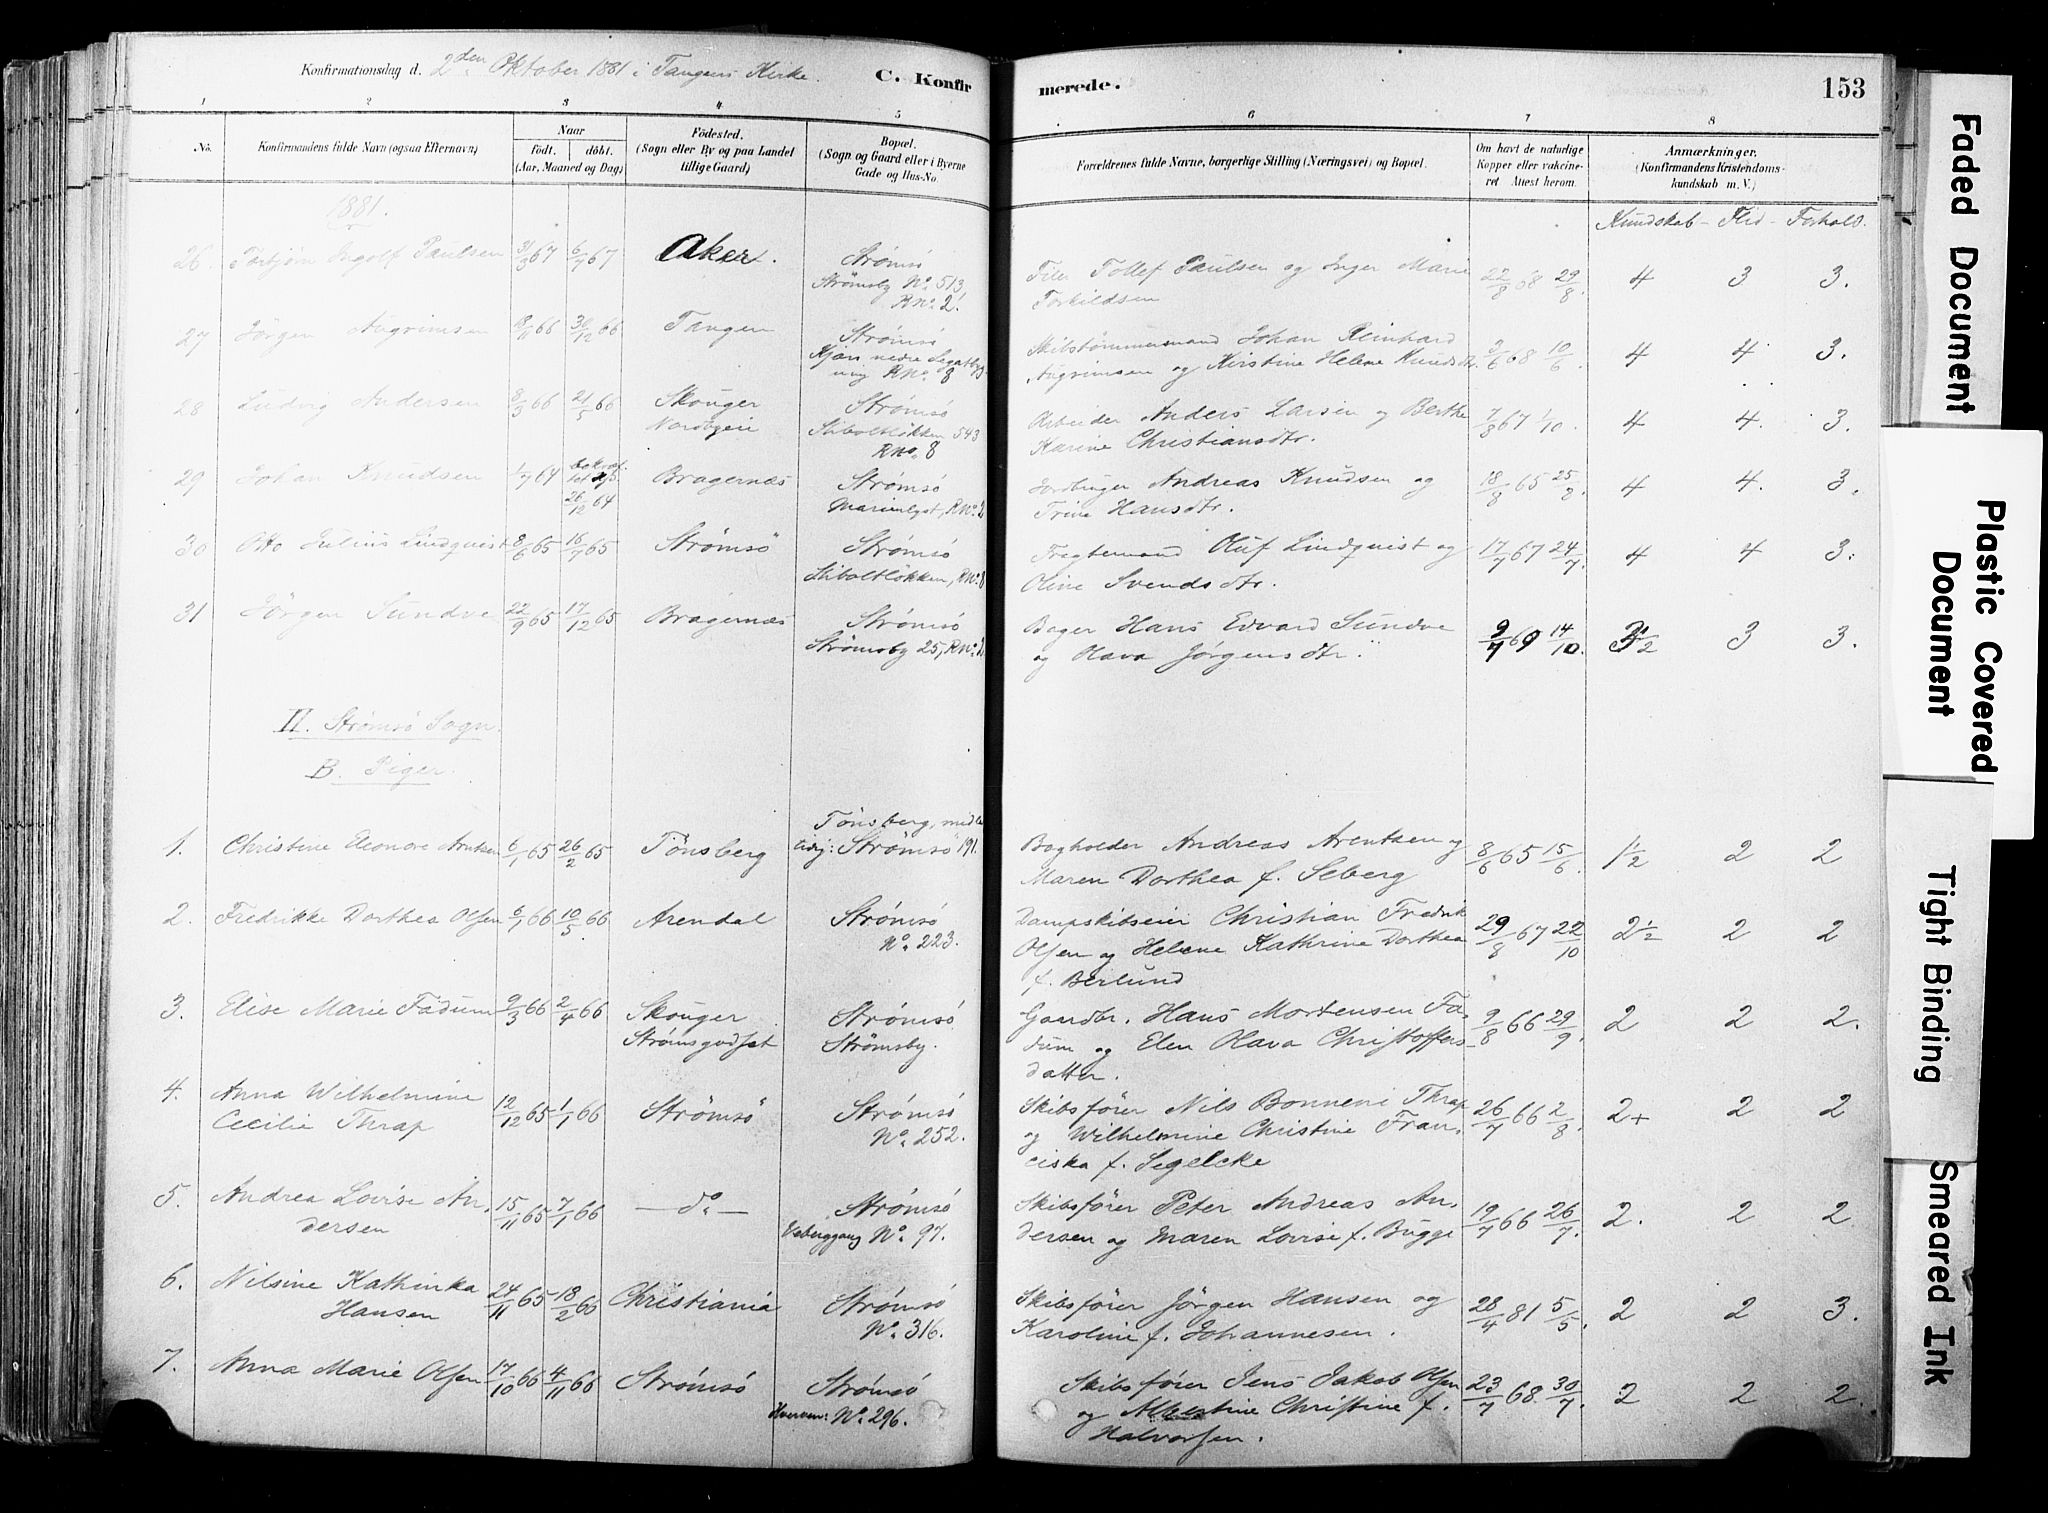 Konfirmationsdag d. 2den Oktober 1881 i Tangens Kirke. C. Konfir
merede. 153
1 2 3 4 5
6 7 8
No.
Konfirmandens fulde Navn (ogsaa Efternavn)
Naar
født. døbt.
(Aar, Maaned og Dag)
Födested.
(Sogn eller By og paa Landet
tillige Gaard)
Bopæl.
(Sogn og Gaard eller i Byerne
Gade og Hus-No.
Forældrenes fulde Navne, borgerlige Stilling (Næringsvei) og Bopæl.
Om havt de naturlige
Kopper eller vakcine-
ret Attest herom.
Anmærkninger.
(Konfirmandens Kristendoms-
kundskab m. V.)
1881.
Kundskab - Flid - Forhold.
26. Torbjørn Ingolf Paulsen 31/3 67 6/7 67 Aker. Strømsö
Strömsby No. 513,
R No. 2.
Tollef Paulsen og Inger Marie
Torkildsen
22/8 68 29/8. 4 3 3.
27 Jörgen Augrimsen 8/11 66 30/12 66 Tangen Strømsö
Kjøsn nedre
R No. 8
Skibstømmermand Johan Reinhard
Augrimsen og Kirstine Helene Knudsdtr.
3/6 68 10/6. 4 4 3.
28 Ludvig Andersen 8/3 66 21/5 66 Skouger
Nordbyeie
Strømsö
Stiboltløkken 543
R No. 8
Arbeider Anders Larsen og Berthe
Karine Christiansdtr.
7/8 67 1/10. 4 4. 3.
29 Johan Knudsen 1/7 64
26/12 64
Bragernæs Strømsö
Marienlyst, R No. 2
Jordbruger Andreas Knudsen og
Trine Hansdtr.
18/8 65 25/8. 4 4. 3.
30 Otto Julius Lindquist 8/6 65 16/7 65 Strømsö Strømsö
Stiboltløkken, R No. 8
Fragtemand Oluf Lindquist og
Oline Svendsdtr.
17/7 67 24/7. 4 4 3.
31 Jörgen Sundve 22/9 65 17/12 65 Bragernæs Strømsö
Strømsby 25, R No. 2.
Bager Hans Edvard Sundve
og Hava Jørgensdtr.
9/7 69 14/10. 3 1/2 3 3.
II. Strømsö Sogn.
B. Piger.
1. Christine Eleonore Arntsen 6/1 65 26/2 65 Tönsberg Tönsberg,
Strömsö 191.
Bogholder Andreas Arentsen og
Maren Dorthea f. Seberg
8/6 65 15/6. 1 1/2 2 2
2. Fredrikke Dorthea Olsen 6/1 66 10/5 66 Arendal Strømsö
No. 223.
Dampskibseier Christian Fredrik
Olsen og Helene Kathrine Dorthea
f. Berlund
29/8 67 22/10 2 1/2 2 2
3. Elise Marie Fadum 9/3 66 2/4 66 Skouger
Strømsgodset
Strømsö
Strømsby.
Gaardbr. Hans Mortensen Fa-
dum og Elen Hava Christoffers-
datter.
9/8 66 29/9. 2 2 2.
4. Anna Wilhelmine
Cecilie Thrap
12/12 65 1/1 66 Strömsö Strömsö
No. 252.
Skibsfører Nils Bonnevi Thrap
og Wilhelmine Christine Fran-
ciska f. Segelcke
26/7 66 2/8. 2+ 2 2
5. Andrea Lovise An-
dersen
15/11 65 7/1 66 — do — Strömsö
No. 97.
Skibsfører Peter Andreas An-
dersen og Maren Lovise f. Bugge
19/7 66 26/7. 2. 2 2
6. Nilsine Kathinka
Hansen
24/11 65 18/2 66 Christiania Strömsö
No. 316.
Skibsfører Jörgen Hansen og
Karoline f. Johannesen.
28/4 81 5/5. 2 2 3.
7. Anna Marie Olsen 17/10 66 4/11 66 Strömsö Strömsö
No. 296.
Skibsfører Jens Jakob Olsen
og Albertine Christine f.
Halvorsen.
23/7 68 30/7. 2 2 2.
Faded Document
Plastic Covered
Document
Tight Binding
Smeared Ink